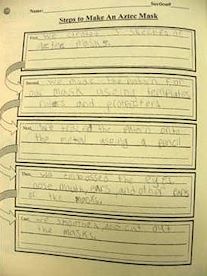 Name:
Steps to Make An Aztec Mask
First,
we created 3 sketches of
aztec masks.
Second, we made the pattern for
our mask using templates
rulers and protractors
Next, we traced the pattern onto
the metal using a pencil
Then, we embossed the eyes
nose mouth, ears and other parts
of the masks.
Last, we and cut out
the masks.